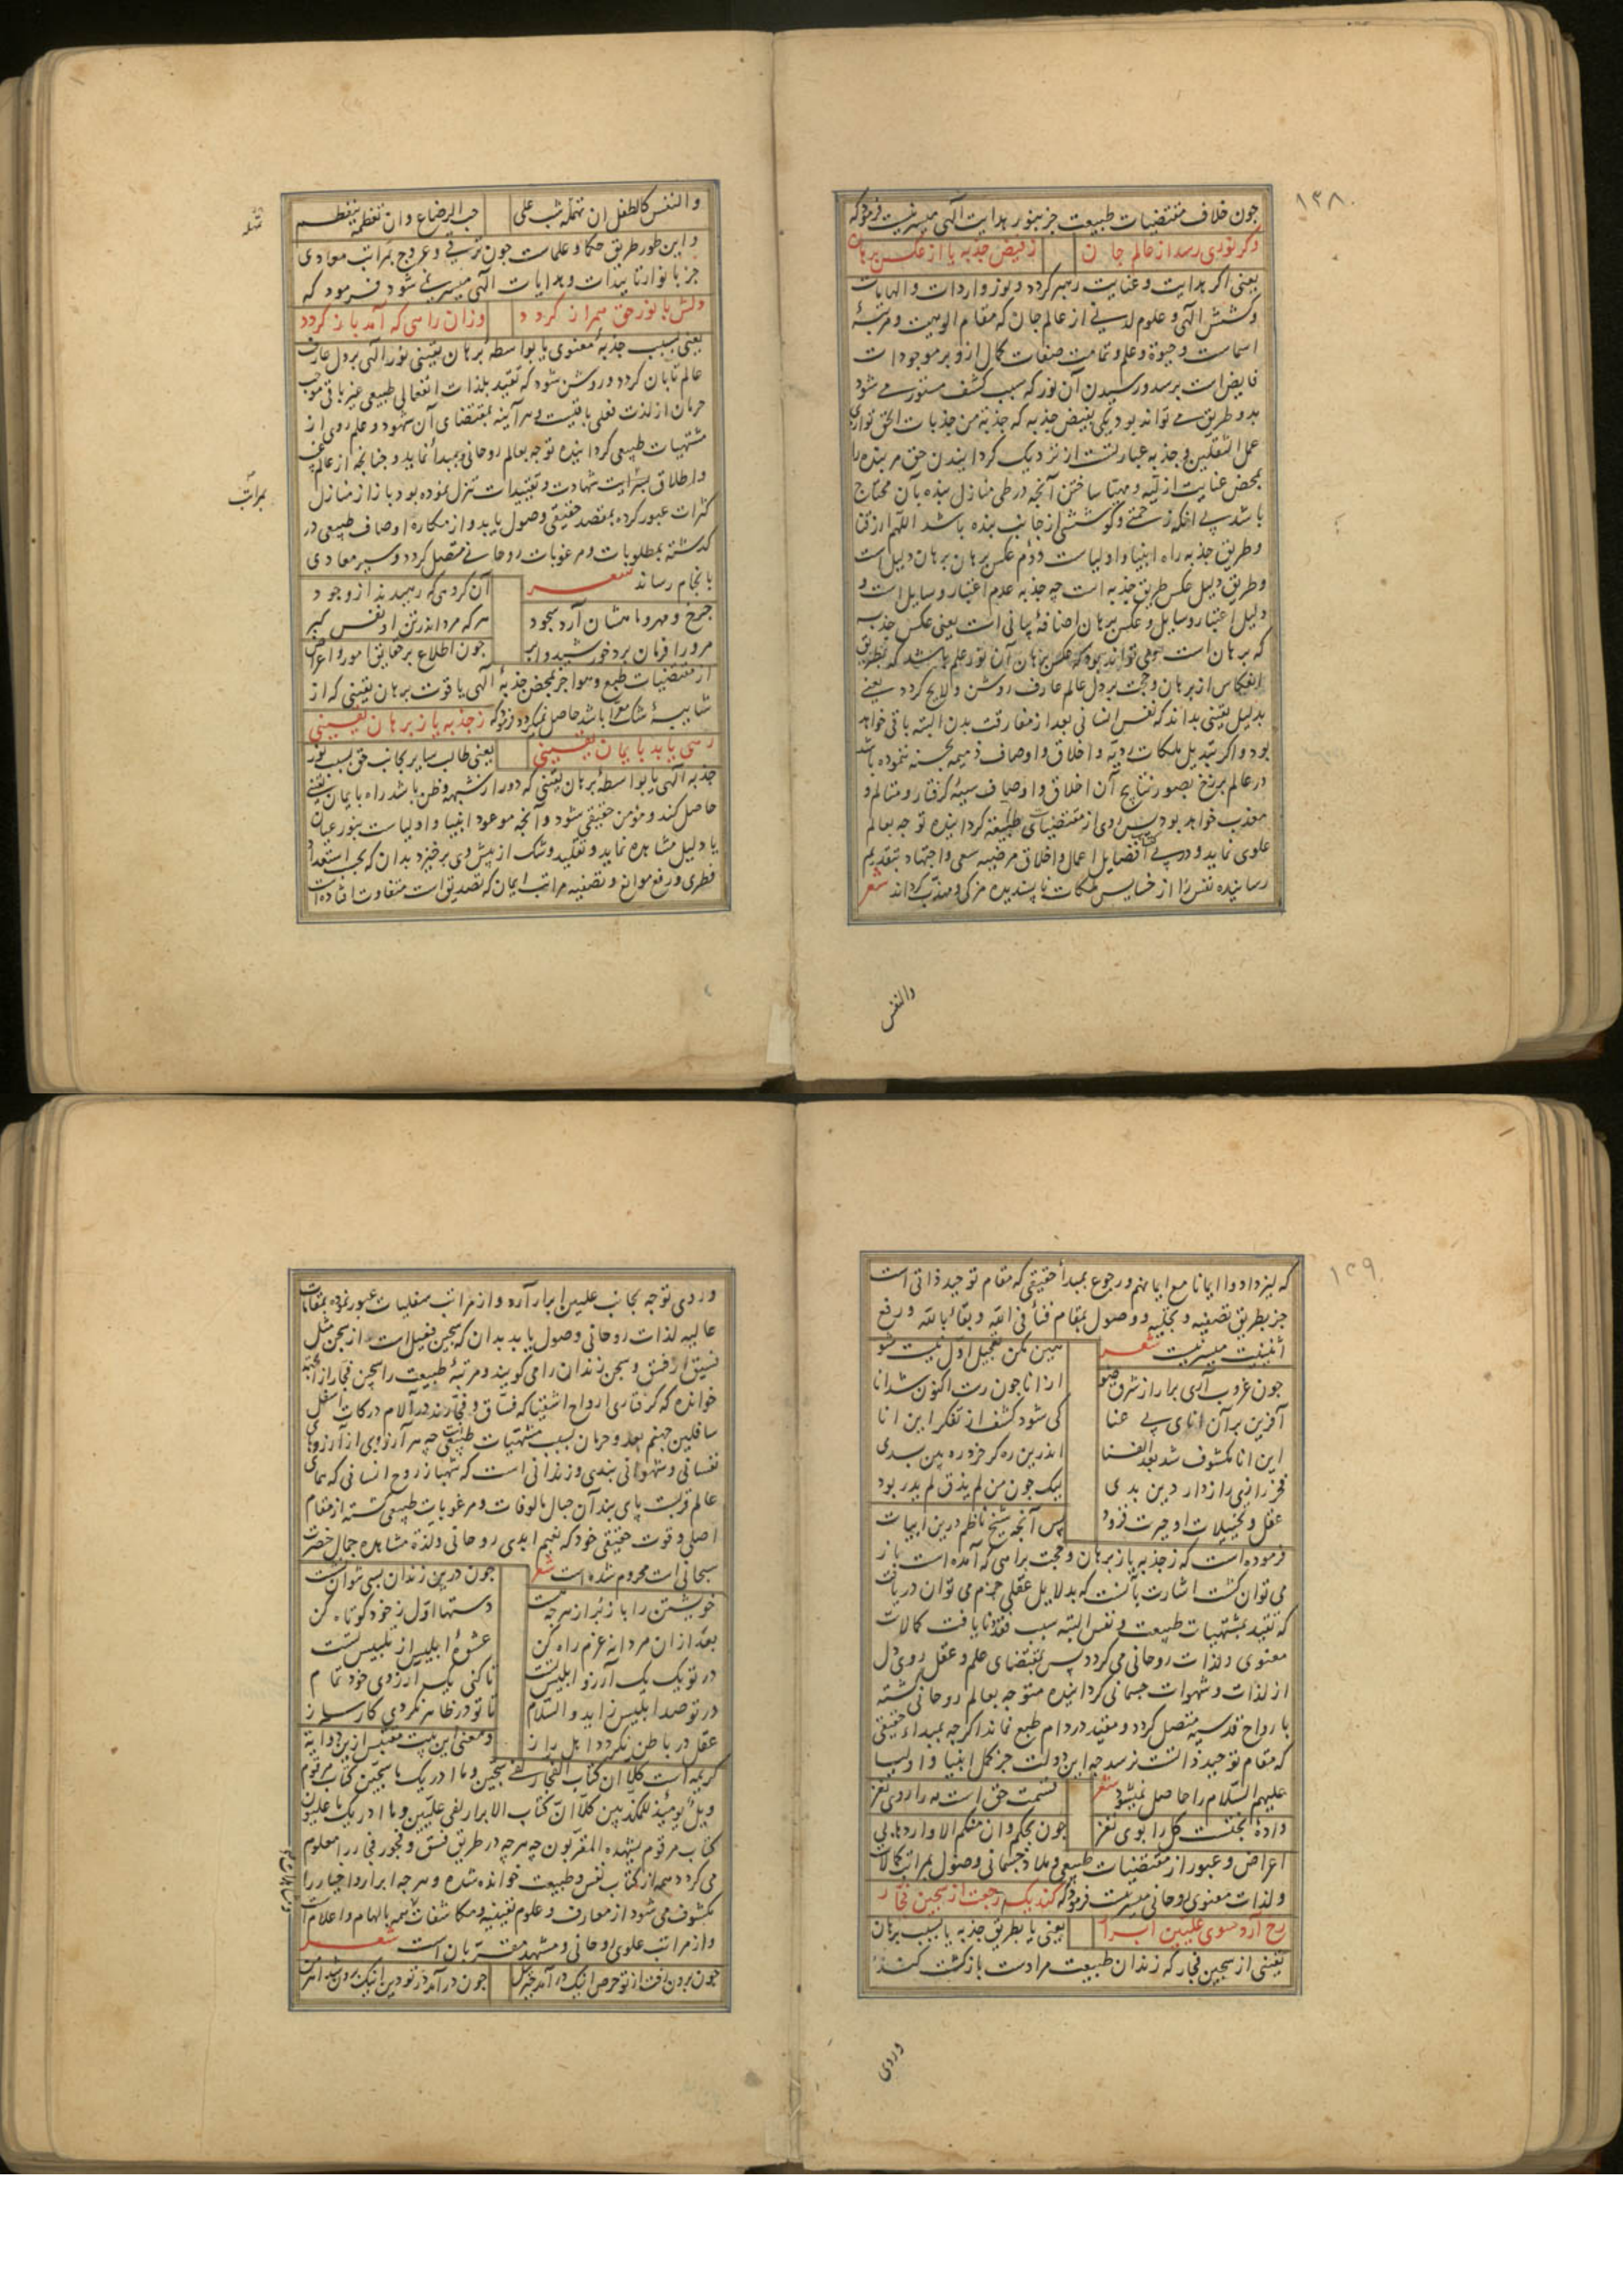 ۱۳۸
چون خلاف مقتضیات طبیعت جز بنور هدایت الهی میسر نیست فرمود که
وکر نوری رسد از عالم جان زفیض جذبه یا از عکس برهان
یعنی اکر هدایت و عنایت رهبر کردد و نور واردات و الهامات
و کشش الهی و علوم لدنی از عالم جان که مقام الوهیت و مرتبهٔ
اسماست و حیوة و علم و تمامت صفات کمال ازو بر موجودات
فایض است برسد و رسیدن آن نور که سبب کشف مستور می شود
بدو طریق می تواند بود یکی بفیض جذبه که جذبة من جذبات الحق توازی
عمل الثقلین و جذبه عبارتست از نزدیک کردانیدن حق مر بنده را
بمحض عنایت ازلیه و مهیا ساختن آنچه در طی منازل بنده بآن محتاج
باشد بی آنکه زحمتی و کوششی از جانب بنده باشد اللهم ارزقنا
و طریق جذبه راه انبیا و اولیاست دوم عکس برهان برهان دلیل است
و طریق دلیل عکس طریق جذبه است چه جذبه عدم اعتبار وسایل است و
دلیل اعتبار وسایل و عکس برهان اضافهٔ بیانی است یعنی عکس جذبه
که برهان است و می تواند بود که عکس برهان آن نور علم باشد که بطریق
انعکاس از برهان و حجت بر دل عالم عارف روشن و لایح کردد یعنی
بدلیل یقینی بداند که نفس انسانی بعد از مفارقت بدن البته باقی خواهد
بود و اکر تبدیل ملکات ردیه و اخلاق و اوصاف ذمیمه بحسنه ننموده باشد
در عالم برزخ بصور نتایج آن اخلاق و اوصاف سیئه کرفتار و متالم و
معذب خواهد بود پس روی از مقتضیات طبیعت کردانیده توجه بعالم
علوی نماید و در پی فضایل اعمال و اخلاق مرضیه سعی و اجتهاد بتقدیم
رسانیده نفس را از خسایس ملکات ناپسندیده مزکی و مهذب کرداند شعر
والنفس
والنفس کالطفل ان تهمله شب علی حب الرضاع وان تفطمه ینفطم
و این طور طریق حکما و علماست چون ترقی و عروج بمراتب معادی
جز بانوار تاییدات و هدایات الهی میسر نمی شود فرمود که
دلش با نور حق همراز کردد وزان راهی که آمد باز کردد
یعنی بسبب جذبهٔ معنوی یا بواسطهٔ برهان یقینی نور الهی بر دل عارف
عالم تابان کردد و روشن شود که تقید بلذات انفعالی طبیعی غیر باقی موجب
حرمان از لذت فعلی باقیست و هرآینه بمقتضای آن شهود و علم روی از
مشتهیات طبیعی کردانیده توجه بعالم روحانی و مبدأ نماید و چنانچه از عالم غیب
و اطلاق بسرایت شهادت و تقییدات تنزل نموده بود باز از منازل
کثرات عبور کرده بمقصد حقیقی وصول یابد و از مکاره اوصاف طبیعی در
کذشته بمطلوبات و مرغوبات روحانی متصل کردد و سیر معادی
بانجام رساند شعر آن کروهی که رهیدند از وجود
چرخ و مهر و ماهشان آرد سجود هر که مرد اندر تن او نفس کبر
مر ورا فرمان برد خورشید و ابر چون اطلاع بر حقایق امور و اعراض
از مقتضیات طبع و هوا جز بمحض جذبهٔ الهی یا قوت برهان یقینی که از
شایبهٔ شک معرا باشد حاصل نمیکردد فرمود که زجذبه یا ز برهان یقینی
رهی یابد بایمان یقینی یعنی طالب سایر بجانب حق بسبب نور
جذبه الهی یا بواسطهٔ برهان یقینی که دور از شبهه و ظن باشد راه بایمان یقینی
حاصل کند و مؤمن حقیقی شود و آنچه موعود انبیا و اولیاست بنور عیان
یا دلیل مشاهده نماید و تقلید و شک از پیش وی برخیزد بدان که بحسب استعداد
فطری و رفع موانع و تصفیه مراتب ایمان که تصدیق است متفاوت افتاده است
تهمله
بمراتب
۱۳۹
که لیزدادوا ایمانا مع ایمانهم و رجوع بمبدأ حقیقی که مقام توحید ذاتی است
جز بطریق تصفیه و تجلیه و وصول بمقام فناء فی الله و بقاء بالله و رفع
اثنینیت میسر نیست شعر هین مکن تعجیل اول نیست شو
چون غروب آری برآ از شرق ضو از انا چون رست اکنون شد انا
آفرین بر آن انای بی عنا کی شود کشف از تفکر این انا
این انا مکشوف شد بعد الفنا اندرین ره کر خرد ره بین بدی
فخر رازی رازدار دین بدی لیک چون من لم یذق لم یدر بود
عقل و تخییلات او حیرت فزود پس آنچه شیخ ناظم درین ابیات
فرموده است که ز جذبه یا ز برهان و حجت براهی که آمده است باز
می توان کشت اشارت بآنست که بدلایل عقلی جزم می توان دریافت
که تقید بمشتهیات طبیعت و نفس البته سبب فقد و نایافت کمالات
معنوی و لذات روحانی می کردد پس بمقتضای علم و عقل روی دل
از لذات و شهوات جسمانی کردانیده متوجه بعالم روحانی کشته
با ارواح قدسیه متصل کردد و مقید در دام طبع نماند اکرچه بمبداء حقیقی
که مقام توحید ذاتست نرسد چه این دولت جز کمل انبیا و اولیا
علیهم السلام را حاصل نمیشود شعر قسمت حق است مه را روی نغز
دادهٔ بختست کل را بوی نغز چون بحکم وان منکم الا واردها بی
اعراض و عبور از مقتضیات طبیعی و ملاذ جسمانی وصول بمراتب کمالات
و لذات معنوی روحانی میسر نیست فرمود که کند یک رجعت از سجین فجار
رخ آرد سوی علیین ابرار یعنی یا بطریق جذبه یا بسبب برهان
یقینی از سجین فجار که زندان طبیعت مراد است بازکشت کند
وردی
وردی توجه بجانب علیین ابرار آرد و از مراتب سفلیات عبور نموده بمقامات
عالیه لذات روحانی وصول یابد بدان که سجین فعیل است از سجن مثل
فسیق از فسق و سجن زندان را می کویند و مرتبهٔ طبیعت را سجین فجار از آنجهة
خوانده که کرفتاری ارواح اشقیا که فساق و فجارند در آلام درکات اسفل
سافلین جهنم بعد و حرمان بسبب مشتهیات طبیعی است چه هر آرزوی از آرزوهای
نفسانی و شهوانی بندی و زندانی است که شهباز روح انسانی که همای
عالم قربت پای بند آن حبال مالوفات و مرغوبات طبیعی کشته از مقام
اصلی و قوت حقیقی خود که نعیم ابدی روحانی و لذة مشاهده جمال حضرت
سبحانی است محروم شده است شعر چون درین زندان بسی نتوان نشست
خویشتن را باز بر از هرچه هست دستها اول ز خود کوتاه کن
بعد از ان مردانه عزم راه کن عشوهٔ ابلیس از تلبیس تست
در تو یک یک آرزو ابلیس تست تا کنی یک آرزوی خود تمام
در تو صد ابلیس زاید والسلام تا تو در ظاهر نکردی کارساز
عقل در باطن نکردد اهل راز و معنی این بیت مقتبس ازین دو آیهٔ
کریمه است کلا ان کتاب الفجار لفی سجین وما ادریک ما سجین کتاب مرقوم
ویل یومئذ للمکذبین کلا ان کتاب الابرار لفی علیین وما ادریک ما علیون
کتاب مرقوم یشهده المقربون چه هرچه در طریق فسق و فجور فجار را معلوم
می کردد همه از کتاب نفس و طبیعت خوانده شده و هرچه ابرار و اخیار را
مکشوف می شود از معارف و علوم یقینیه و مکاشفات همه بالهام و اعلام است
و از مراتب علوی روحانی و مشهد مقربان است شعر
چون برون رفت از تو حرص آنکه درآمد جبرئیل چون درآمد در تو دین آنک برون شد اهرمن